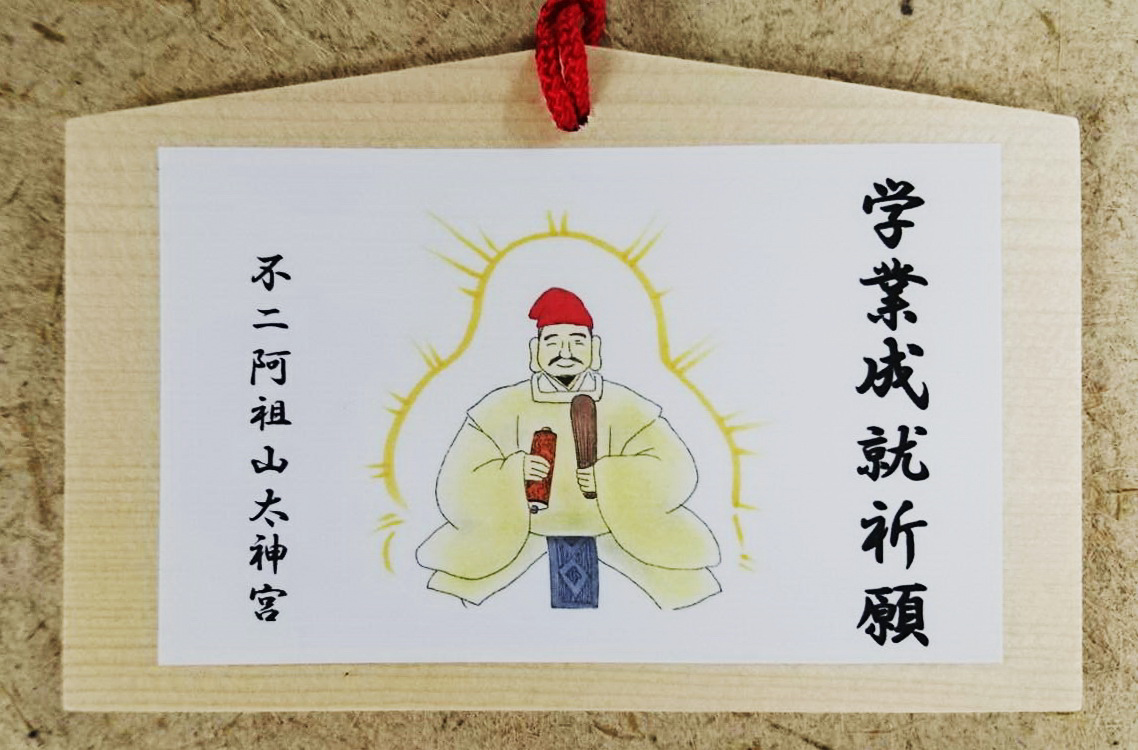 学業成就祈願
不二阿祖山太神宮